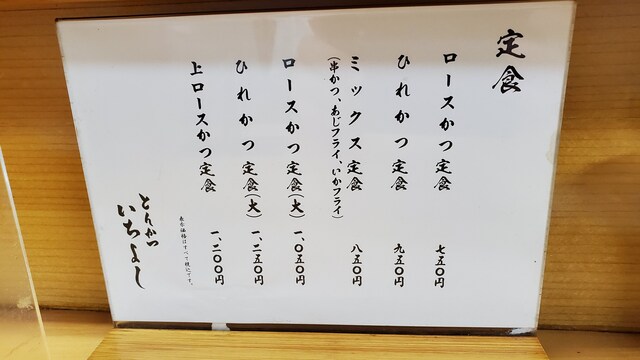 定食
ロースかつ定食 七五〇円
ひれかつ定食 九五〇円
ミックス定食 八五〇円
(串かつ、あじフライ、いかフライ)
ロースかつ定食(大) 一、〇五〇円
ひれかつ定食(大) 一、二五〇円
上ロースかつ定食 一、二〇〇円
表示価格はすべて税込です。
とんかつ
いちよし